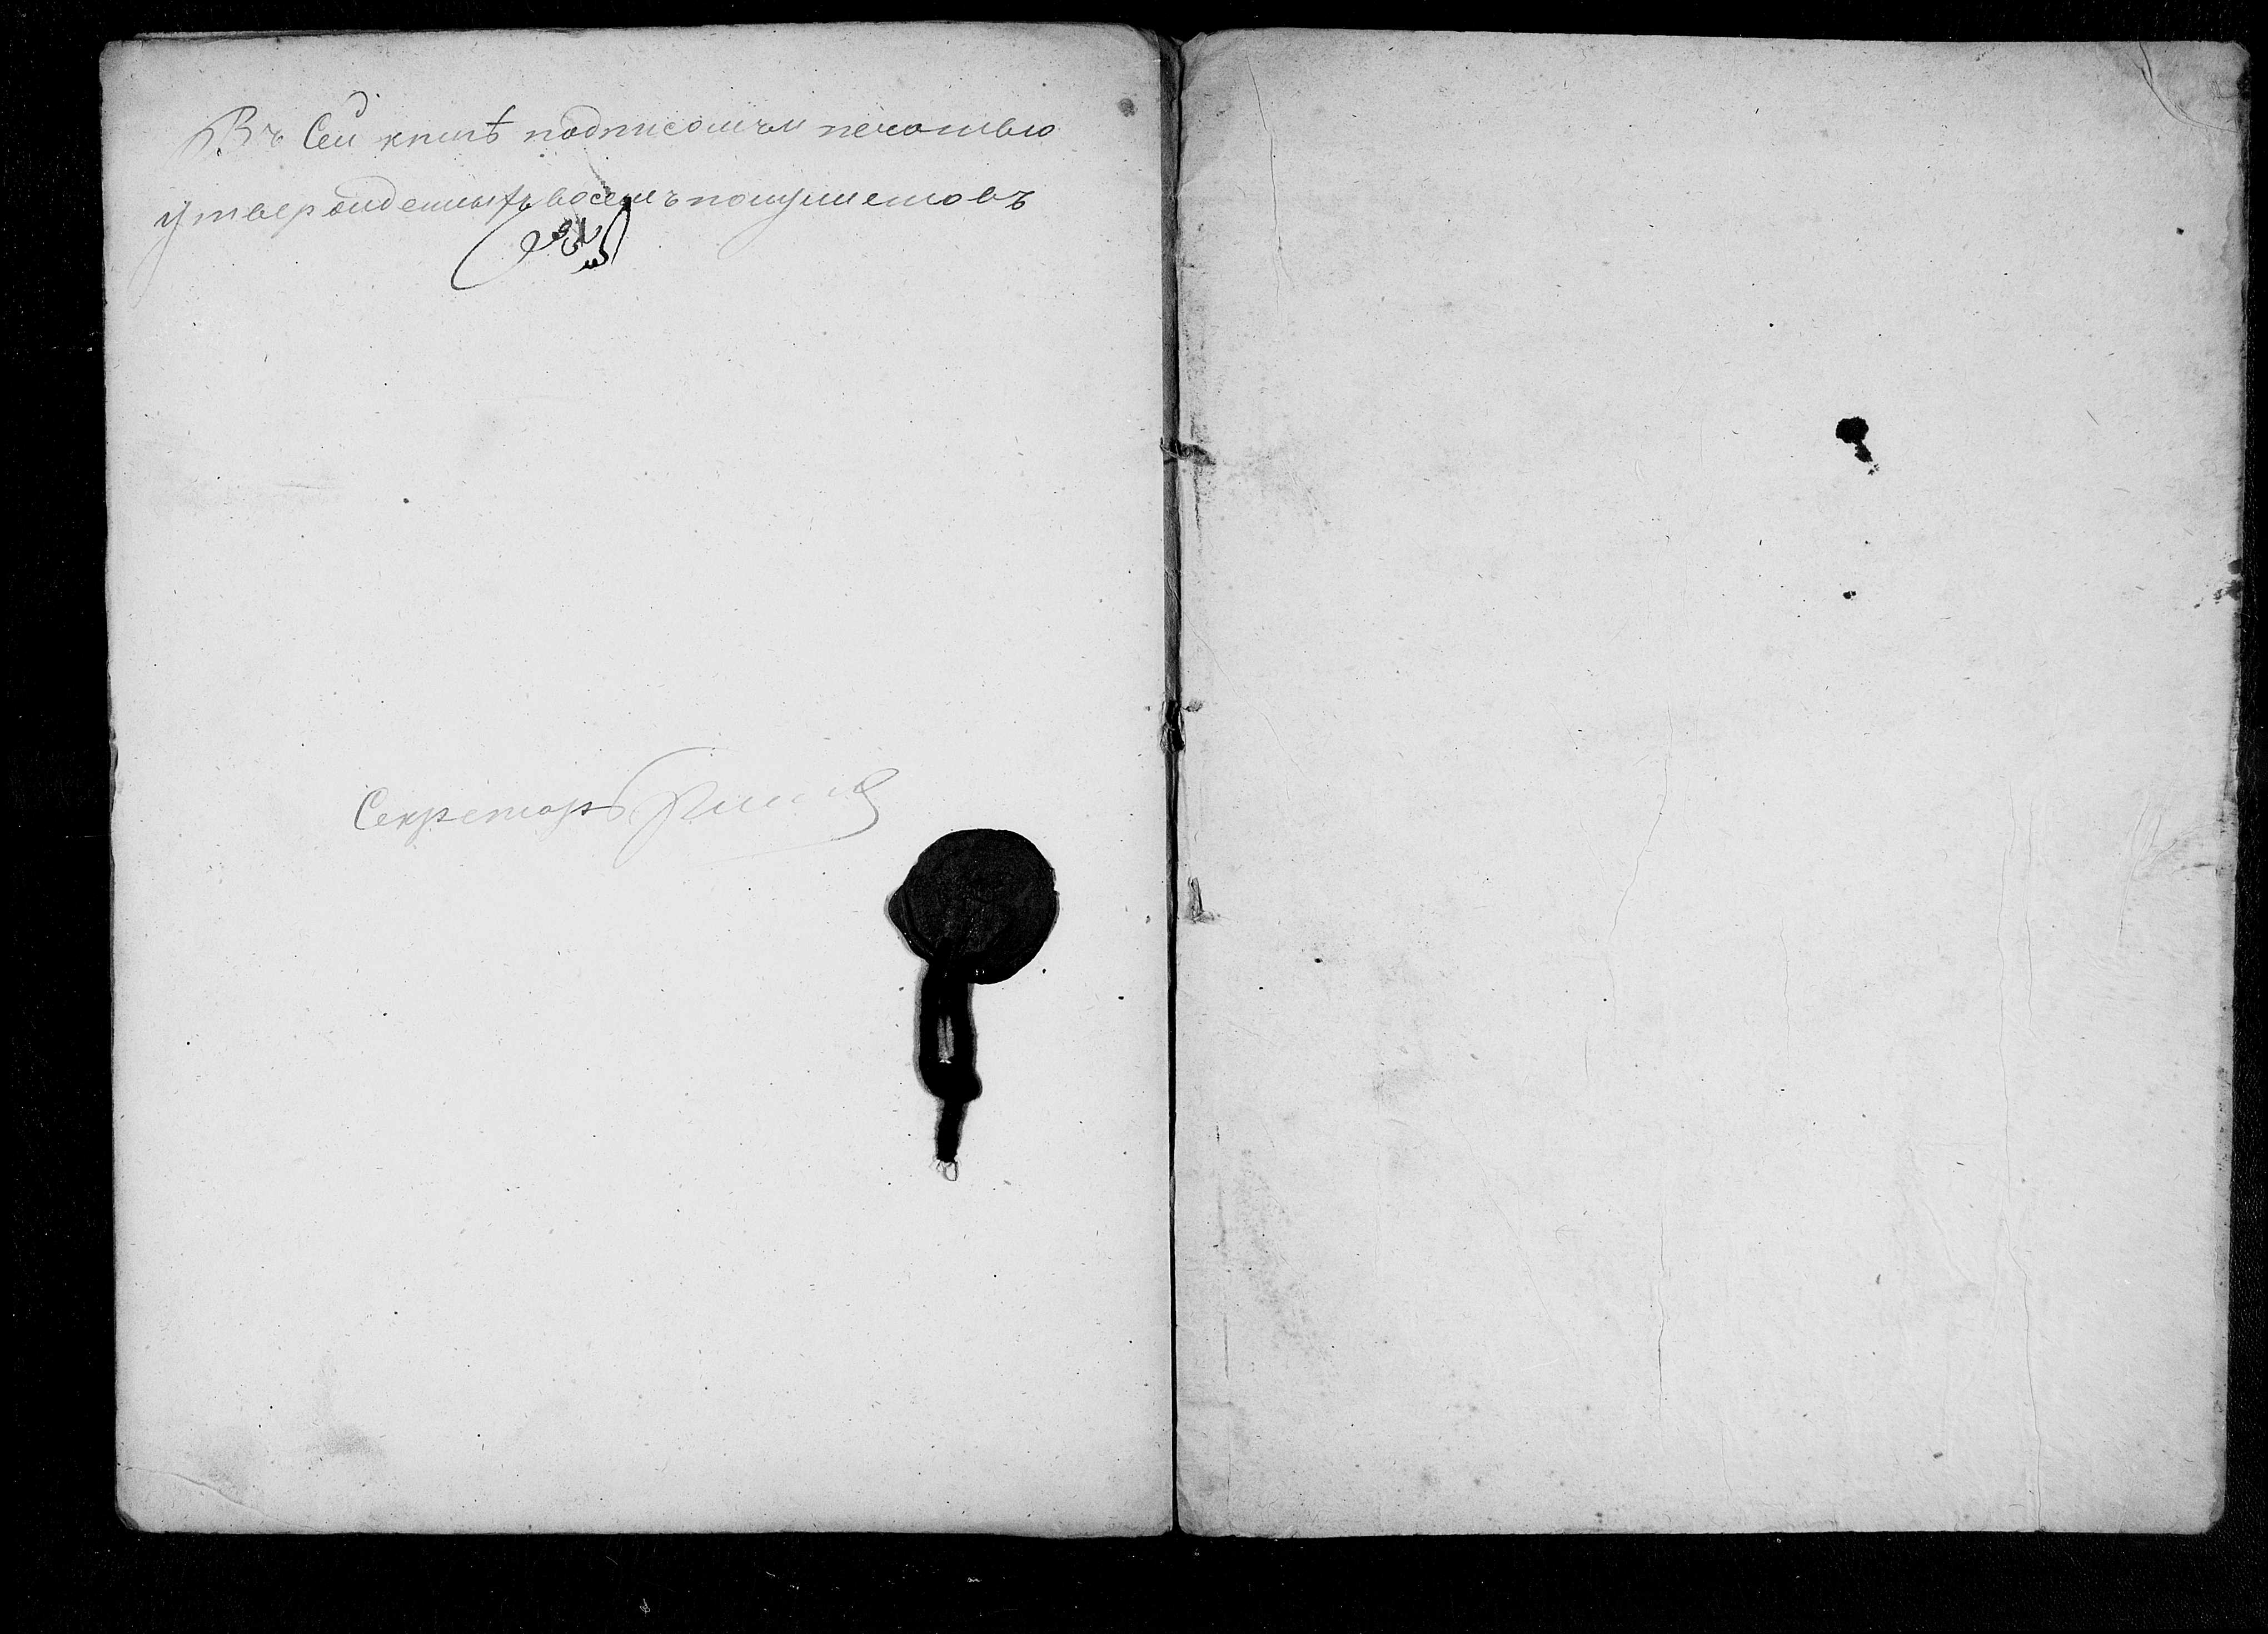 Въ Сей книгѣ подписомъ и печатью
утвержденныхъ восемь полулистовъ
Секретарь